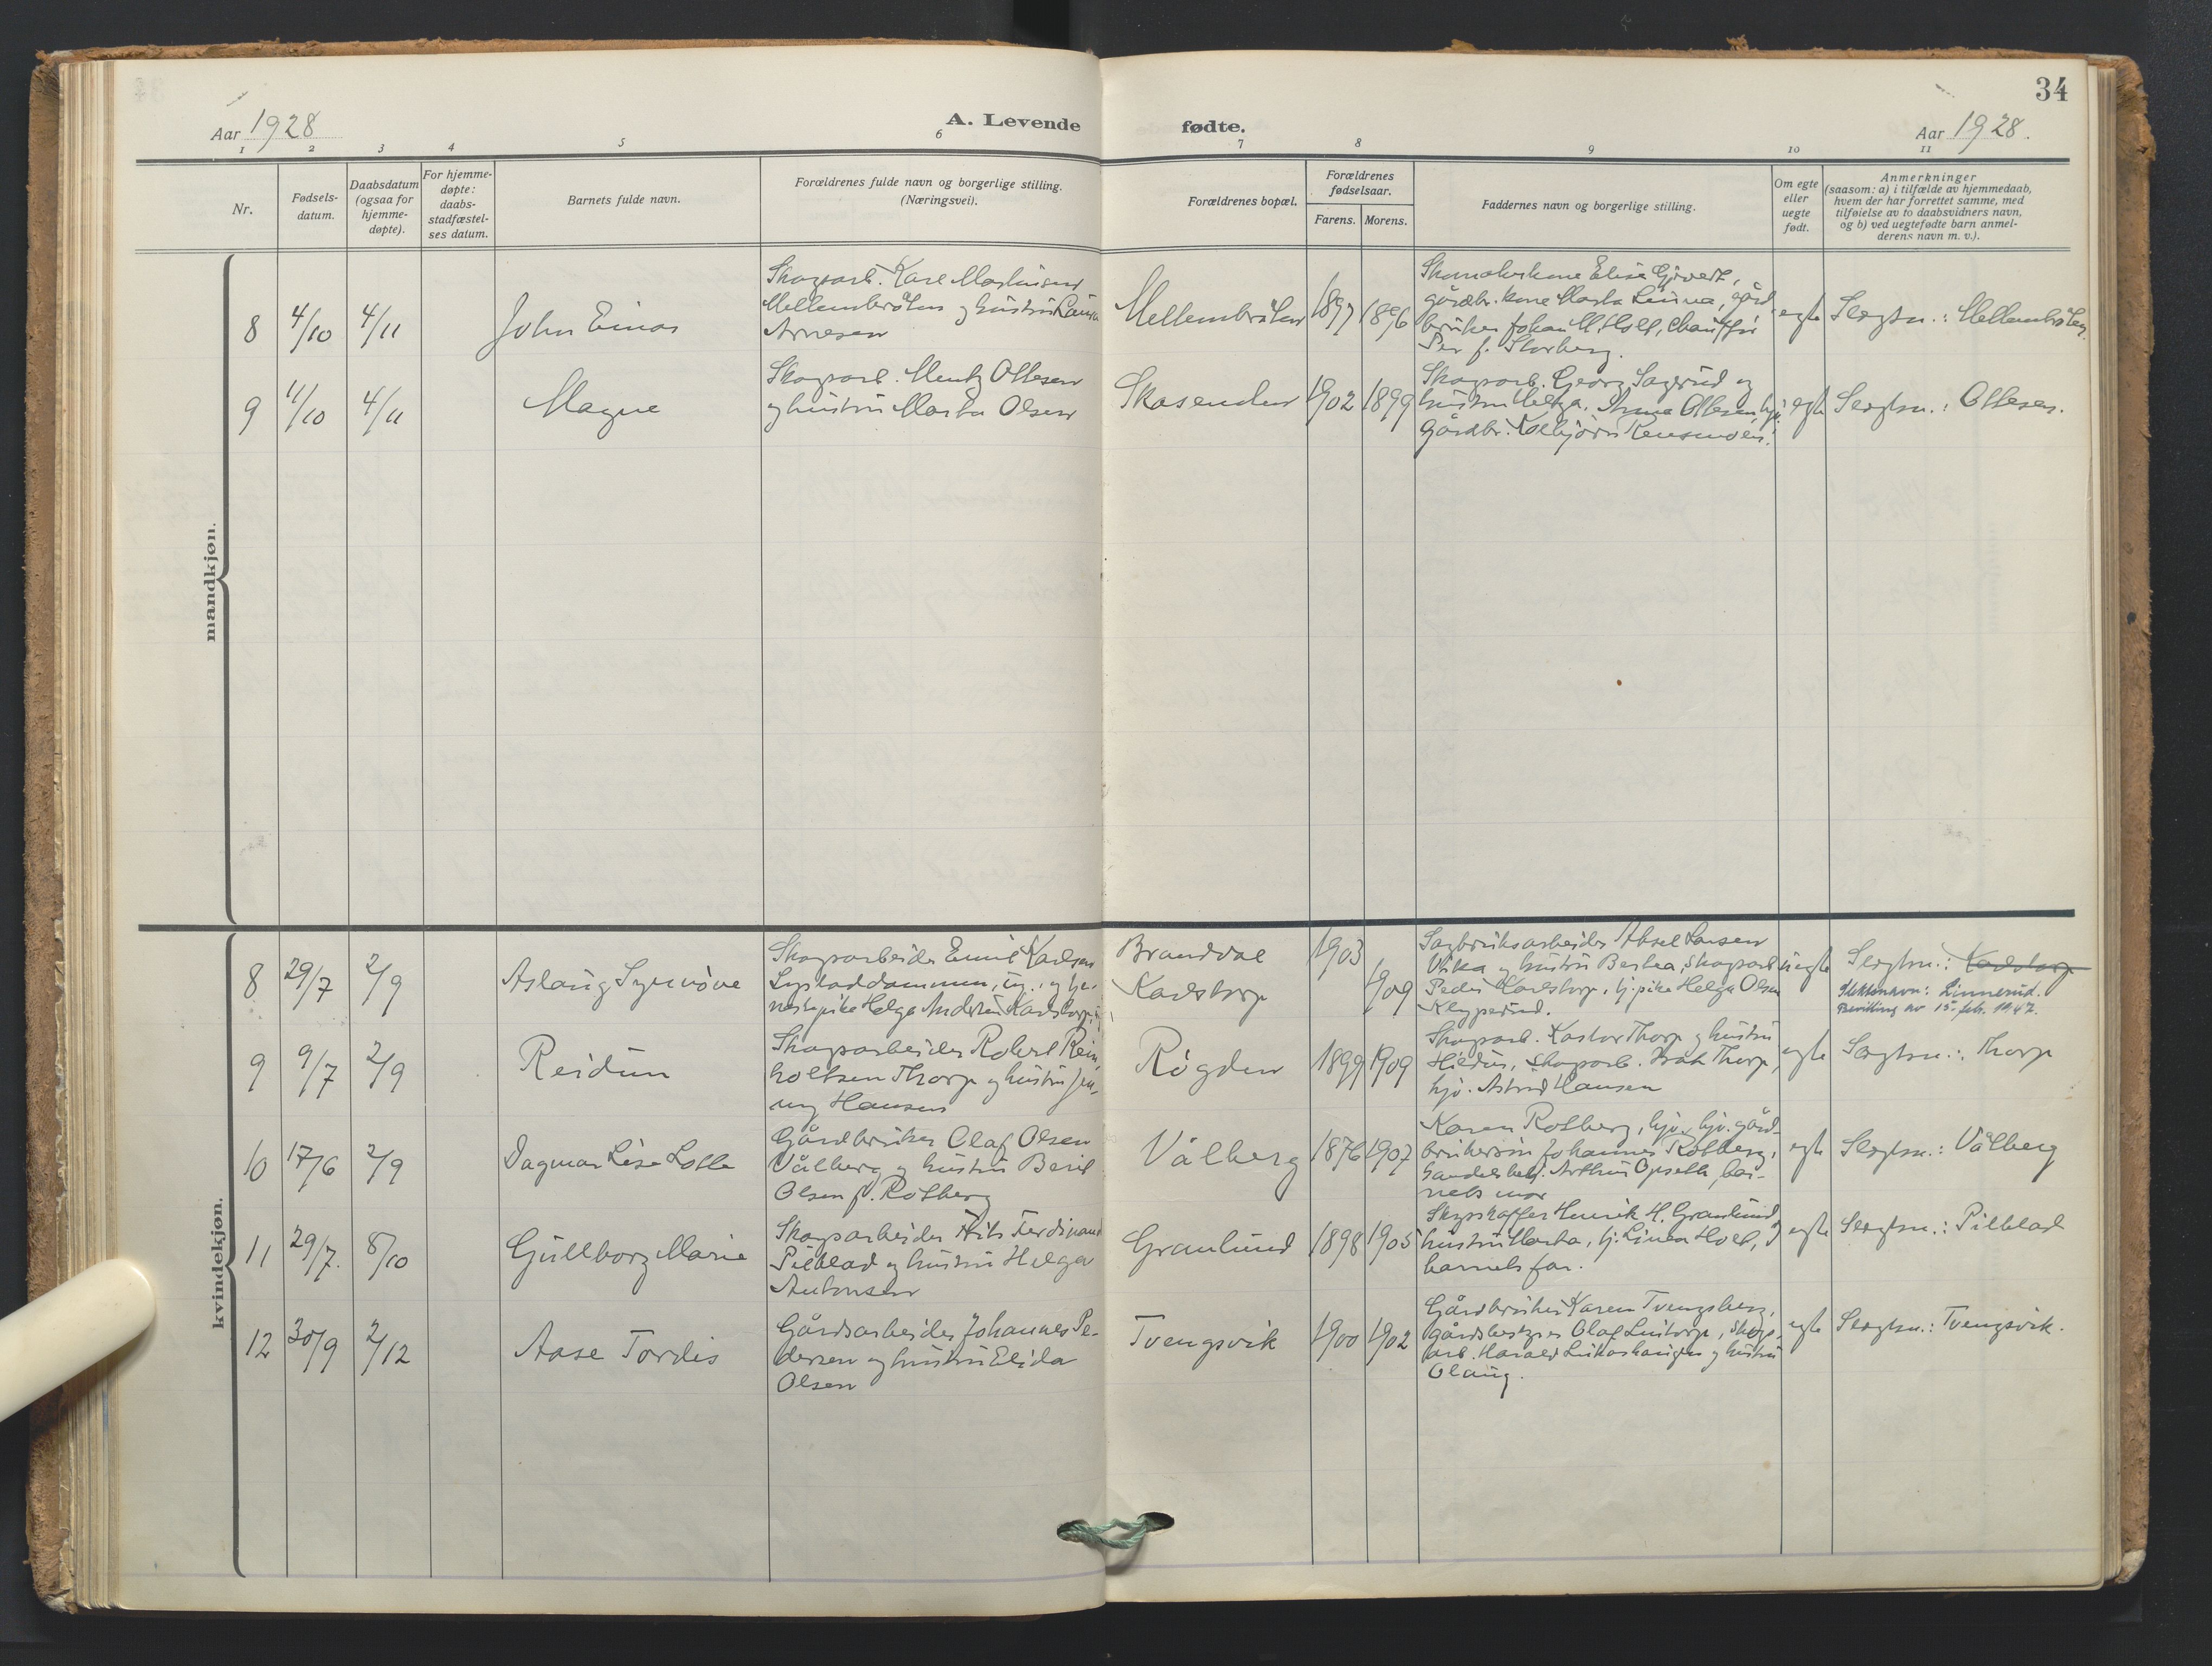 34
Aar 1928
A. Levende fødte.
Aar 1928.
1 2 3 4 5 6 7 8 9 10 11
Nr.
Fødsels-
datum.
Daabsdatum
(ogsaa for
hjemme-
døpte).
For hjemme-
døpte:
daabs-
stadfæstel-
ses datum.
Barnets fulde navn.
Forældrenes fulde navn og borgerlige stilling.
(Næringsvei).
Forældrenes bopæl.
Forældrenes
fødselsaar.
Farens. Morens.
Faddernes navn og borgerlige stilling.
Om egte
eller
uegte
født.
Anmerkninger
(saasom: a) i tilfælde av hjemmedaab,
hvem der har forrettet samme, med
tilføielse av to daabsvidners navn,
og b) ved uegtefødte barn anmel-
derens navn m. v.).
mandkjøn.
8 4/10 4/11
John Einar
Skogarb. Karl Martinsen
Mellembråten og hustru
Arnesen
Mellembråten
1897 1896
Skomakerkone Elise
gårdbr. kone Marta Linna, gård
bruker Johan M. Holt, Chauffør
Per J. Storberg.
egte
Slegtsn.: Mellembråten
9 11/10 4/11
Magne
Skogarb. Mentz Ottesen
og hustru Marta Olsen
Skasenden
1902 1899
Skogarb. Georg Sagerud og
hustru Helga, Ottesen
Gårdbr. Kolbjørn
egte
Slegtsn.: Ottesen.
kvindekjøn.
8 29/7 2/9
Aslaug Synnöve
Skogarbeider Emil Karlsen
og tje-
nestepike Helga Andersen Karlstorp,
Brandval
Karlstorp
1903
1909
Sagbruksarbeider Aksel Larsen
Vika og hustru Bertea, skogarb.
Peder Karlstorp, tj. pike Helga Olsen
Klypperud.
uegte
Slegtsn.: Karlstorp
Slektsnavn: Linnerud.
Bevilling av 15. feb. 1947.
9 9/7 2/9
Reidun
Skogarbeider Robert Rein
holtsen Thorp og hustru Jen-
ny Hansen
Rögden
1899 1909
Skogarb. Kastor Thorp og hustru
Hildur, skogarb. Thorp,
hjv. Astrid Hansen
egte
Slegtsn.: Thorp
10 17/6 2/9
Dagmar Lise Lotte
Gårdbruker Olaf Olsen
Vålberg og hustru Beril
Olsen f. Rotberg
Vålberg
1876 1907
Karen Rotberg, hjv. gård-
brukersön Johannes Rotberg,
handelsbetj. Arthur Opseth, bar-
nets mor
egte
Slegtsn.: Vålberg
11 29/7. 8/10
Gullborg Marie
Skogarbeider Nils Ferdinand
Pilblad og hustru Helga
Antonsen
Granlund
1898 1905
Skysskaffer Henrik H. Granlund,
hustru Marta, tj. Linea Holt,
barnets far.
egte
Slegtsn.: Pilblad
12 30/9 2/12
Aase Tordis
Gårdsarbeider Johannes Pe-
dersen og hustru Elida
Olsen
Tvengsvik
1900 1902
Gårdbruker Karen Tvengsberg,
gårdbestyrer Olaf Lintorp, skogs-
arb. Harald Linkashaugen og hustru
Olaug.
egte
Slegtsn.: Tvengsvik.